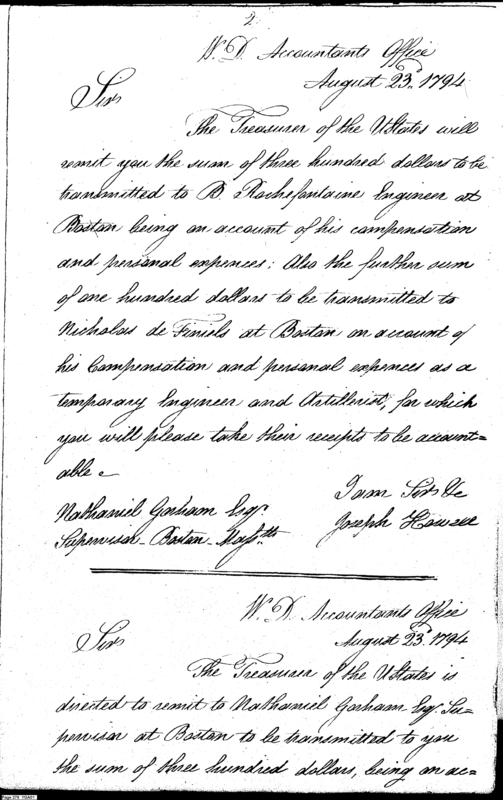 2
W. D. Accountants Office
August 23d. 1794
Sir
The Treasurer of the UStates will
remit you the sum of three hundred dollars to be
transmitted to B. Rochefontaine Engineer at
Boston being on account of his compensation
and personal expences; Also the further sum
of one hundred dollars to be transmitted to
Nicholas de Finiels at Boston on account of
his Compensation and personal expences as a
temporary Engineer and Artillerist, for which
you will please take their receipts to be account=
able
I am Sir &c
Nathaniel Gorham Esqr.
Joseph Howell
Supervisor Boston Masstts
W. D. Accountants Office
August 23d. 1794
Sir
The Treasurer of the UStates is
directed to remit to Nathaniel Gorham Esqr. Su=
pervisor at Boston to be transmitted to you
the sum of three hundred dollars, being on ac=